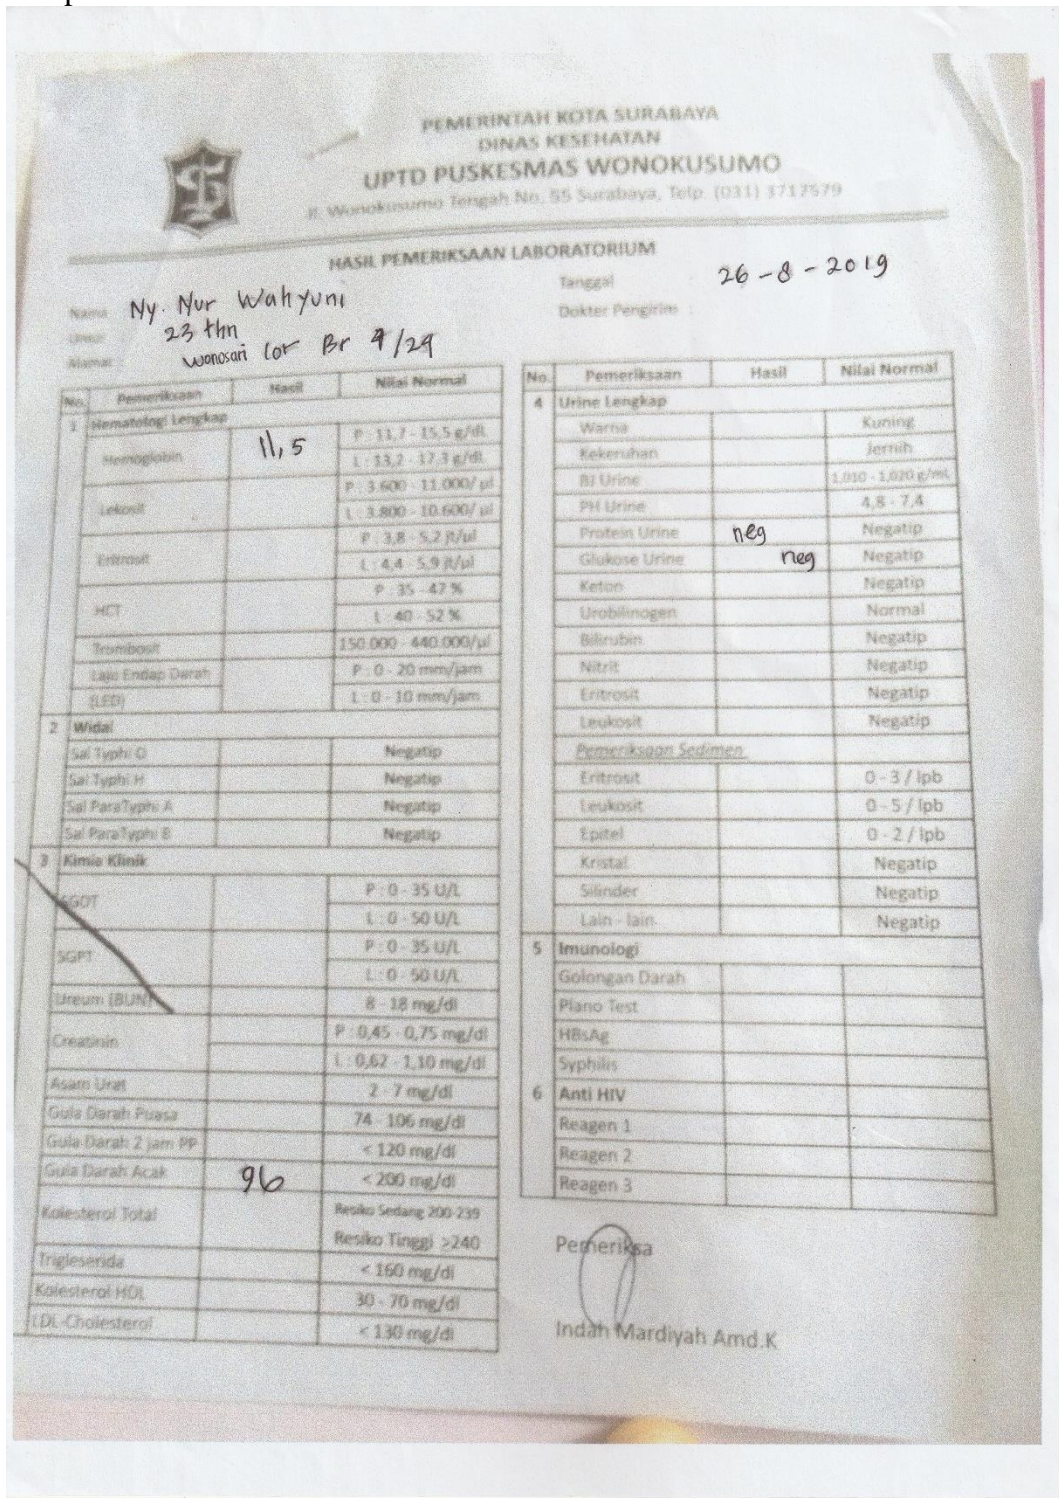 PEMERINTAH KOTA SURABAYA
DINAS KESEHATAN
UPTD PUSKESMAS WONOKUSUMO
Jl. Wonokusumo Tengah No. 55 Surabaya, Telp. (031) 3717579
HASIL PEMERIKSAAN LABORATORIUM
Nama Ny. Nur Wahyuni
Umur 23 thn
Alamat : Wonosari lor Br 4/29
Tanggal : 26-8-2019
Dokter Pengirim :
No. Pemeriksaan Hasil Nilai Normal
1 Hematologi Lengkap
Hemoglobin 11,5 P : 11,7 - 15,5 g/dl
L : 13,2 - 17,3 g/dl
Lekosit P : 3.600 - 11.000/ µl
L : 3.800 - 10.600/ µl
Eritrosit P : 3,8 - 5,2 jt/µl
L : 4,4 - 5,9 jt/µl
HCT P : 35 - 47 %
L : 40 - 52 %
Trombosit 150.000 - 440.000/µl
Laju Endap Darah P : 0 - 20 mm/jam
(LED) L : 0 - 10 mm/jam
2 Widal
Sal Typhi O Negatip
Sal Typhi H Negatip
Sal ParaTyphi A Negatip
Sal ParaTyphi B Negatip
3 Kimia Klinik
SGOT P : 0 - 35 U/L
L : 0 - 50 U/L
SGPT P : 0 - 35 U/L
L : 0 - 50 U/L
Ureum (BUN) 8 - 18 mg/dl
Creatinin P : 0,45 - 0,75 mg/dl
L : 0,62 - 1,10 mg/dl
Asam Urat 2 - 7 mg/dl
Gula Darah Puasa 74 - 106 mg/dl
Gula Darah 2 jam PP < 120 mg/dl
Gula Darah Acak 96 < 200 mg/dl
Kolesterol Total Resiko Sedang 200-239
Resiko Tinggi >240
Trigleserida < 160 mg/dl
Kolesterol HDL 30 - 70 mg/dl
LDL-Cholesterol < 130 mg/dl
No. Pemeriksaan Hasil Nilai Normal
4 Urine Lengkap
Warna Kuning
Kekeruhan Jernih
BJ Urine 1,010 - 1,020 g/mL
PH Urine 4,8 - 7,4
Protein Urine neg Negatip
Glukose Urine neg Negatip
Keton Negatip
Urobilinogen Normal
Bilirubin Negatip
Nitrit Negatip
Eritrosit Negatip
Leukosit Negatip
Pemeriksaan Sedimen
Eritrosit 0 - 3 / lpb
Leukosit 0 - 5 / lpb
Epitel 0 - 2 / lpb
Kristal Negatip
Silinder Negatip
Lain - lain Negatip
5 Imunologi
Golongan Darah
Plano Test
HBsAg
Syphilis
6 Anti HIV
Reagen 1
Reagen 2
Reagen 3
Pemeriksa
Indah Mardiyah Amd.K